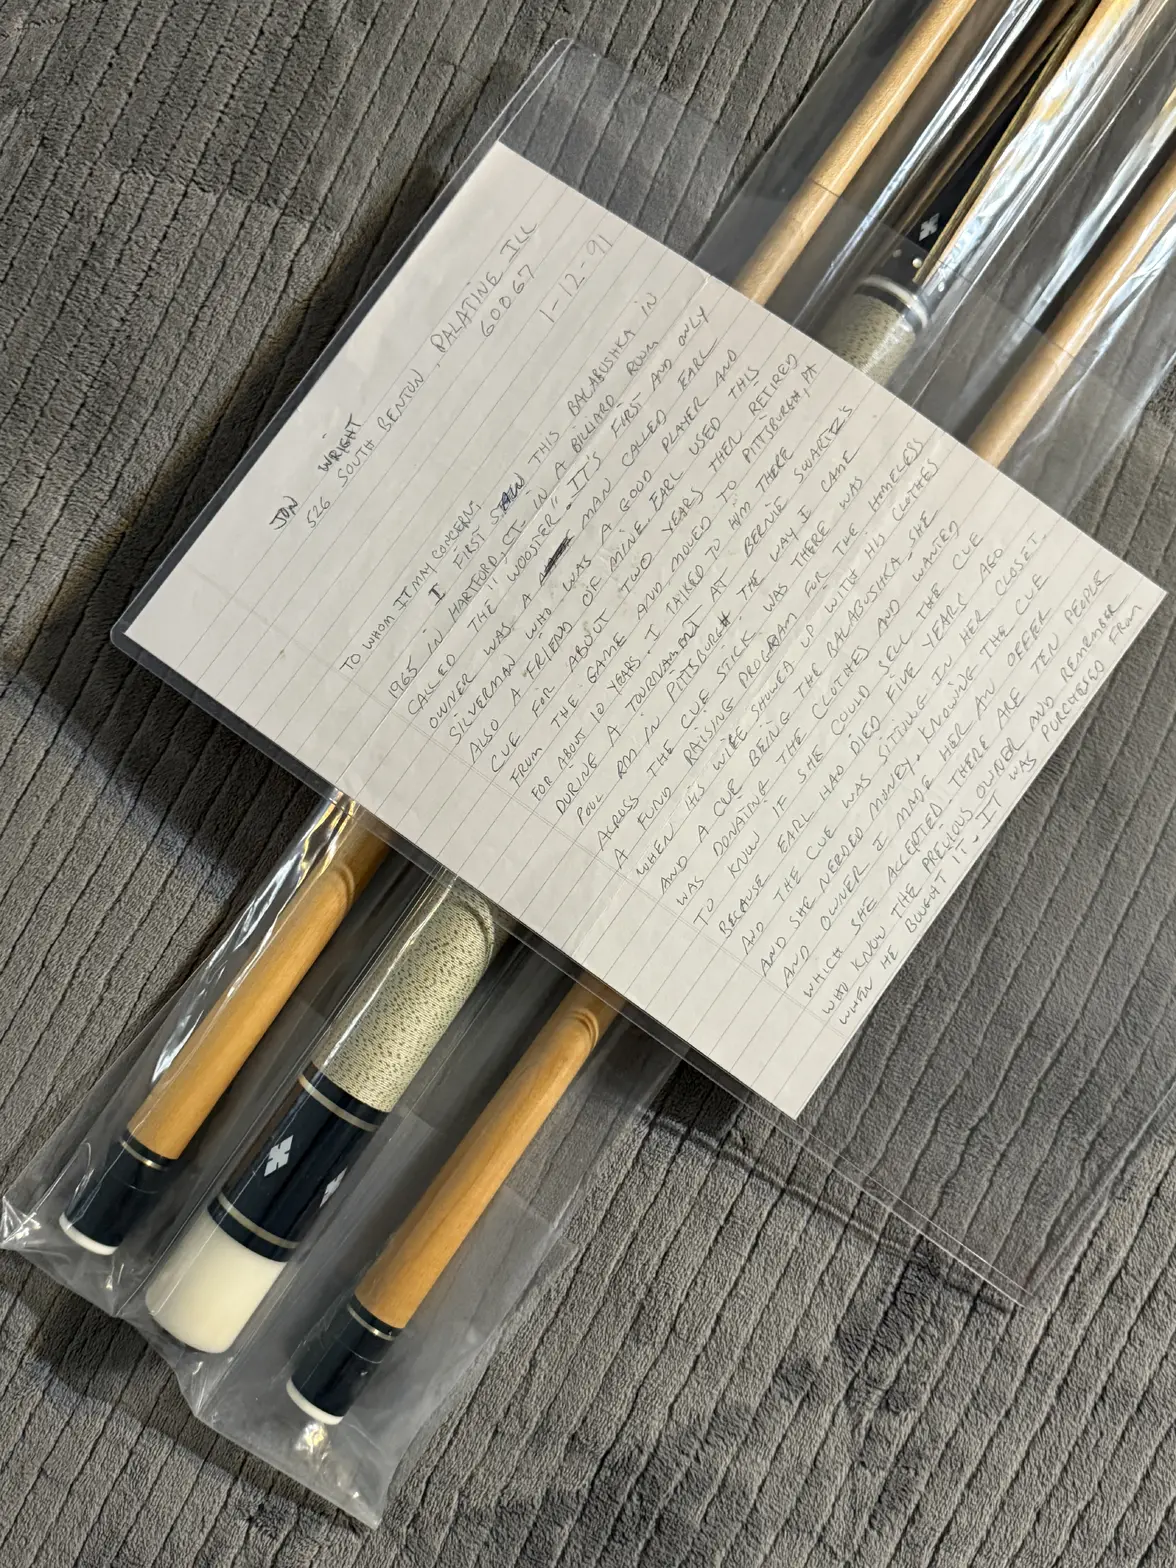 JON WRIGHT
526 SOUTH BENTON, PALATINE ILL
60067
1-12-91
TO WHOM IT MAY CONCERN:
I FIRST SAW THIS BALABUSHKA IN
1965 IN HARTFORD, CT. IN A BILLIARD ROOM IN
CALLED THE "WOOSTER". IT'S FIRST AND ONLY
OWNER WAS A MAN CALLED EARL
SILVERMAN WHO WAS A GOOD PLAYER AND
ALSO A FRIEND OF MINE. EARL USED THIS
CUE FOR ABOUT TWO YEARS THEN RETIRED
FROM THE GAME AND MOVED TO PITTSBURGH, PA
FOR ABOUT 10 YEARS. I TALKED TO HIM THERE
DURING A TOURNAMENT AT BERNIE SWARTZ'S
POOL ROOM IN PITTSBURGH. THE WAY I CAME
ACROSS THE CUE STICK WAS THERE WAS
A FUND RAISING PROGRAM FOR THE HOMELESS
WHEN HIS WIFE SHOWED UP WITH HIS CLOTHES
AND A CUE BEING THE BALABUSHKA. SHE
WAS DONATING THE CLOTHES AND WANTED
TO KNOW IF SHE COULD SELL THE CUE
BECAUSE EARL HAD DIED FIVE YEARS AGO
AND THE CUE WAS SITTING IN HER CLOSET
AND SHE NEEDED MONEY. KNOWING THE CUE
AND OWNER I MADE HER AN OFFER
WHICH SHE ACCEPTED. THERE ARE TEN PEOPLE
WHO KNOW THE PREVIOUS OWNER AND REMEMBER
WHEN HE BOUGHT IT - IT WAS PURCHASED FROM